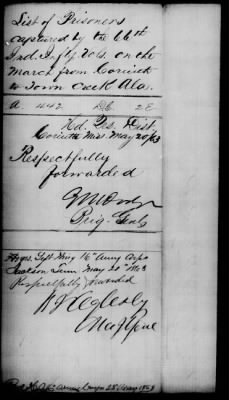 List of Prisoners
captured by the 66th
Ind. Infty Vols. on the
March from Corinth
to Town Creek Ala.
A 442 D.C. 2E
Hd. Qrs. Dist.
Corinth Miss. May 20/63
Respectfully
forwarded
G M Dodge
Brig. Genl.
Hdqrs. Left Wing 16th Army Corps
Jackson Tenn May 21st 1863
Respectfully forwarded
R J Oglesby
Maj Genl
Army Corps 28 May 1863